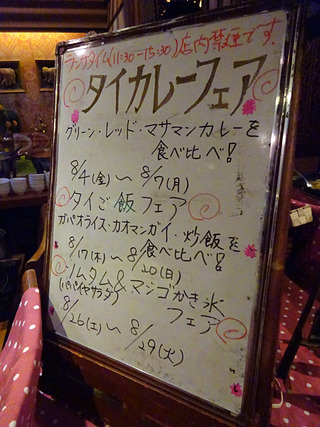 ランチタイム(11:30-15:30)店内禁煙です。
タイカレーフェア
グリーン・レッド・マサマンカレーを
食べ比べ!
8/4(金)〜8/7(月)
タイご飯フェア
ガパオライス・カオマンガイ・炒飯を
食べ比べ!
8/17(木)〜8/20(日)
ソムタム&マンゴかき氷
(パパイヤサラダ)
フェア
8/26(土)〜8/29(火)